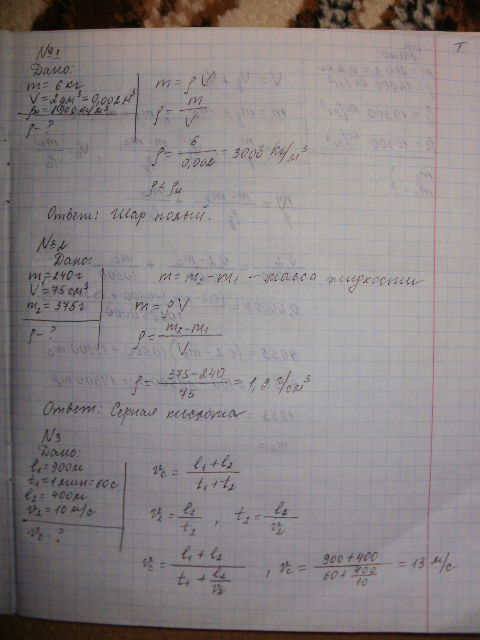 №1
Дано:
m = 6 кг
V = 2 дм³ = 0,002 м³
ρ - ?
m = ρV
ρ = m/V
ρ = 6/0,002 = 3000 кг/м³
Ответ: Шар полый.
№2
Дано:
m₁ = 240 г
V = 75 см³
m₂ = 375 г
ρ - ?
m = m₂ - m₁ - масса жидкости
m = ρV
ρ = (m₂ - m₁)/V
ρ = (375 - 240)/75 = 1,8 г/см³
Ответ: Серная кислота
№3
Дано:
l₁ = 900 м
t₁ = 1 мин = 60 с
l₂ = 400 м
v₂ = 10 м/с
vc - ?
vc = (l₁ + l₂)/(t₁ + t₂)
v₂ = l₂/t₂ , t₂ = l₂/v₂
vc = (l₁ + l₂)/(t₁ + l₂/v₂) , vc = (900 + 400)/(60 + 400/10) = 13 м/с